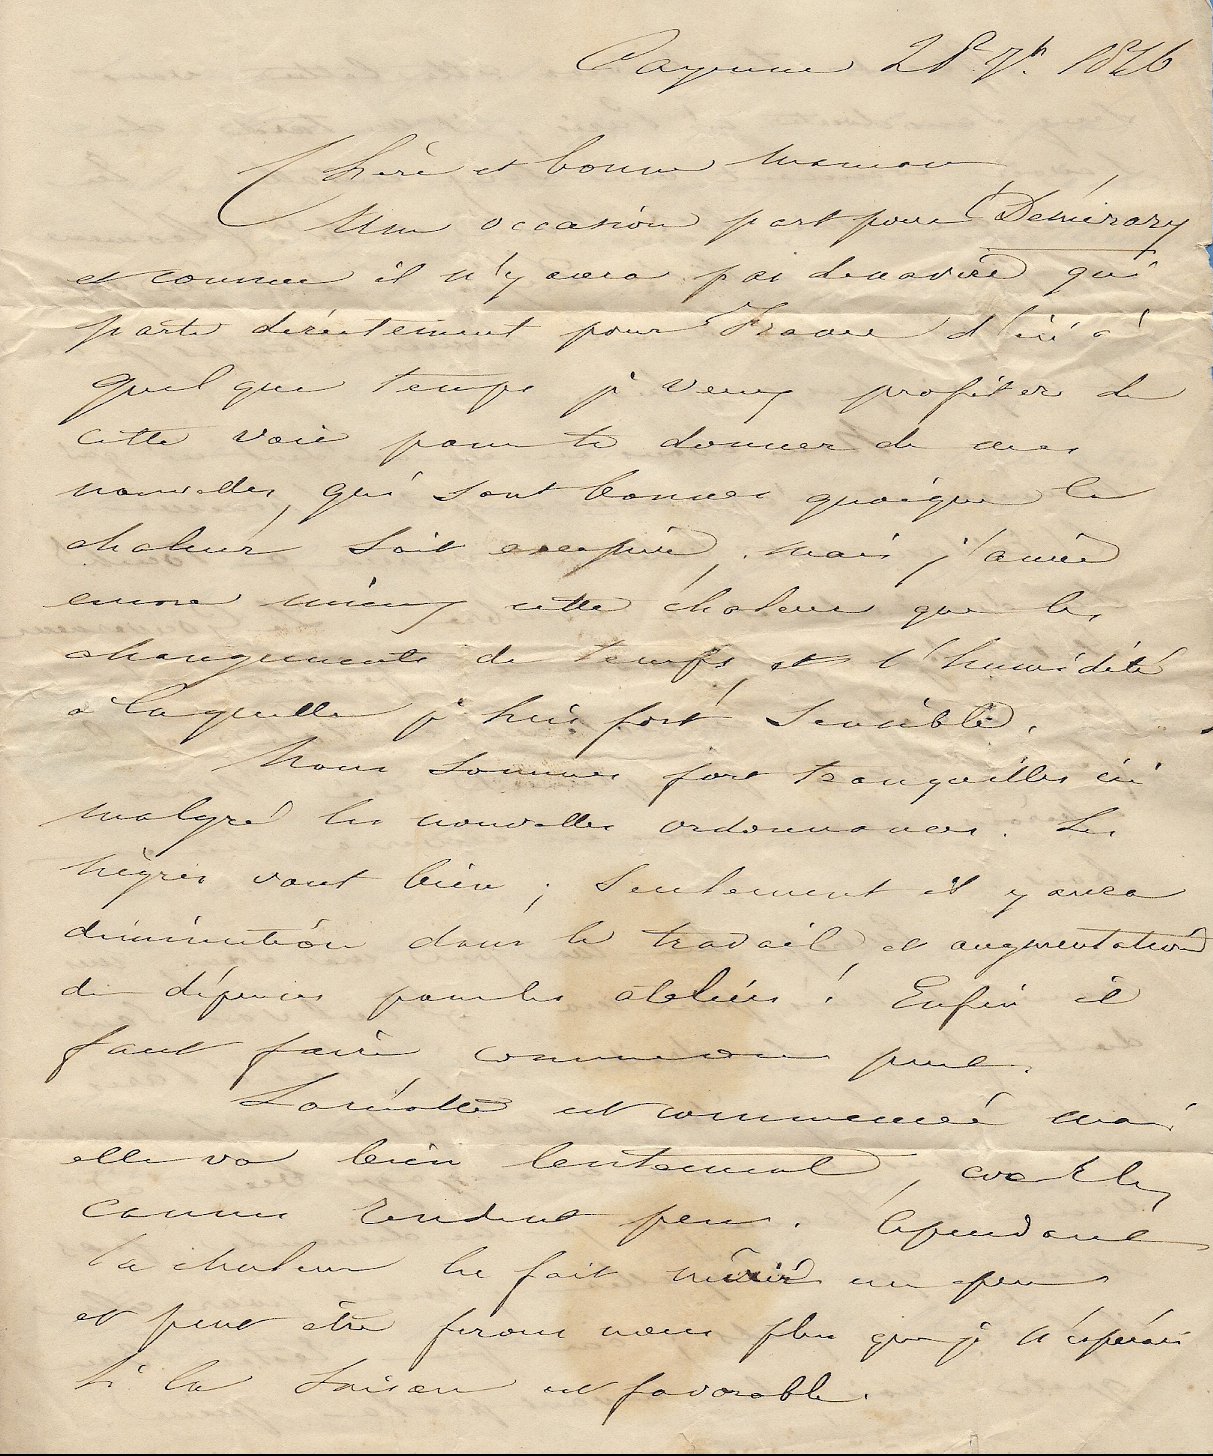 Cayenne 28 7bre 1846
Chère et bonne maman
Une occasion part pour Démérary
et comme il n'y aura pas de navire qui
parte directement pour France d'ici à
quelque temps je veux profiter de
cette voie pour te donner de mes
nouvelles, qui sont bonnes quoique la
chaleur soit excessive, mais j'aime
encore mieux cette chaleur que les
changements de temps, et l'humidité
à laquelle je suis fort sensible.
Nous sommes fort tranquilles ici
malgré les nouvelles ordonnances. Les
nègres vont bien ; seulement il y aura
diminution dans le travail, et augmentation
de dépenses pour les ateliers ! Enfin il
faut faire comme on peut.
La récolte est commencée mais
elle va bien lentement, car les
cannes rendent peu. Cependant
la chaleur les fait mûrir un peu
et peut être ferons nous plus que je n'espérais
si la saison est favorable.